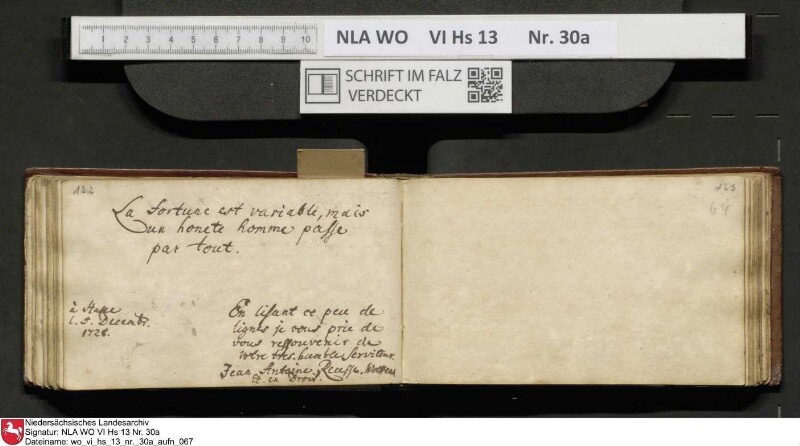 1 2 3 4 5 6 7 8 9 10
NLA WO VI Hs 13 Nr. 30a
SCHRIFT IM FALZ
VERDECKT
122
La Fortune est variable, mais
un honete homme passe
par tout.
à Halle
l. 5. Decembr.
1728.
En lisant ce peu de
lignes je vous prie de
vous ressouvenir de
votre tres humble Serviteur.
Jean Antoine
Et. en Droit.
123
64
Niedersächsisches Landesarchiv
Signatur: NLA WO VI Hs 13 Nr. 30a
Dateiname: wo_vi_hs_13_nr._30a_aufn_067